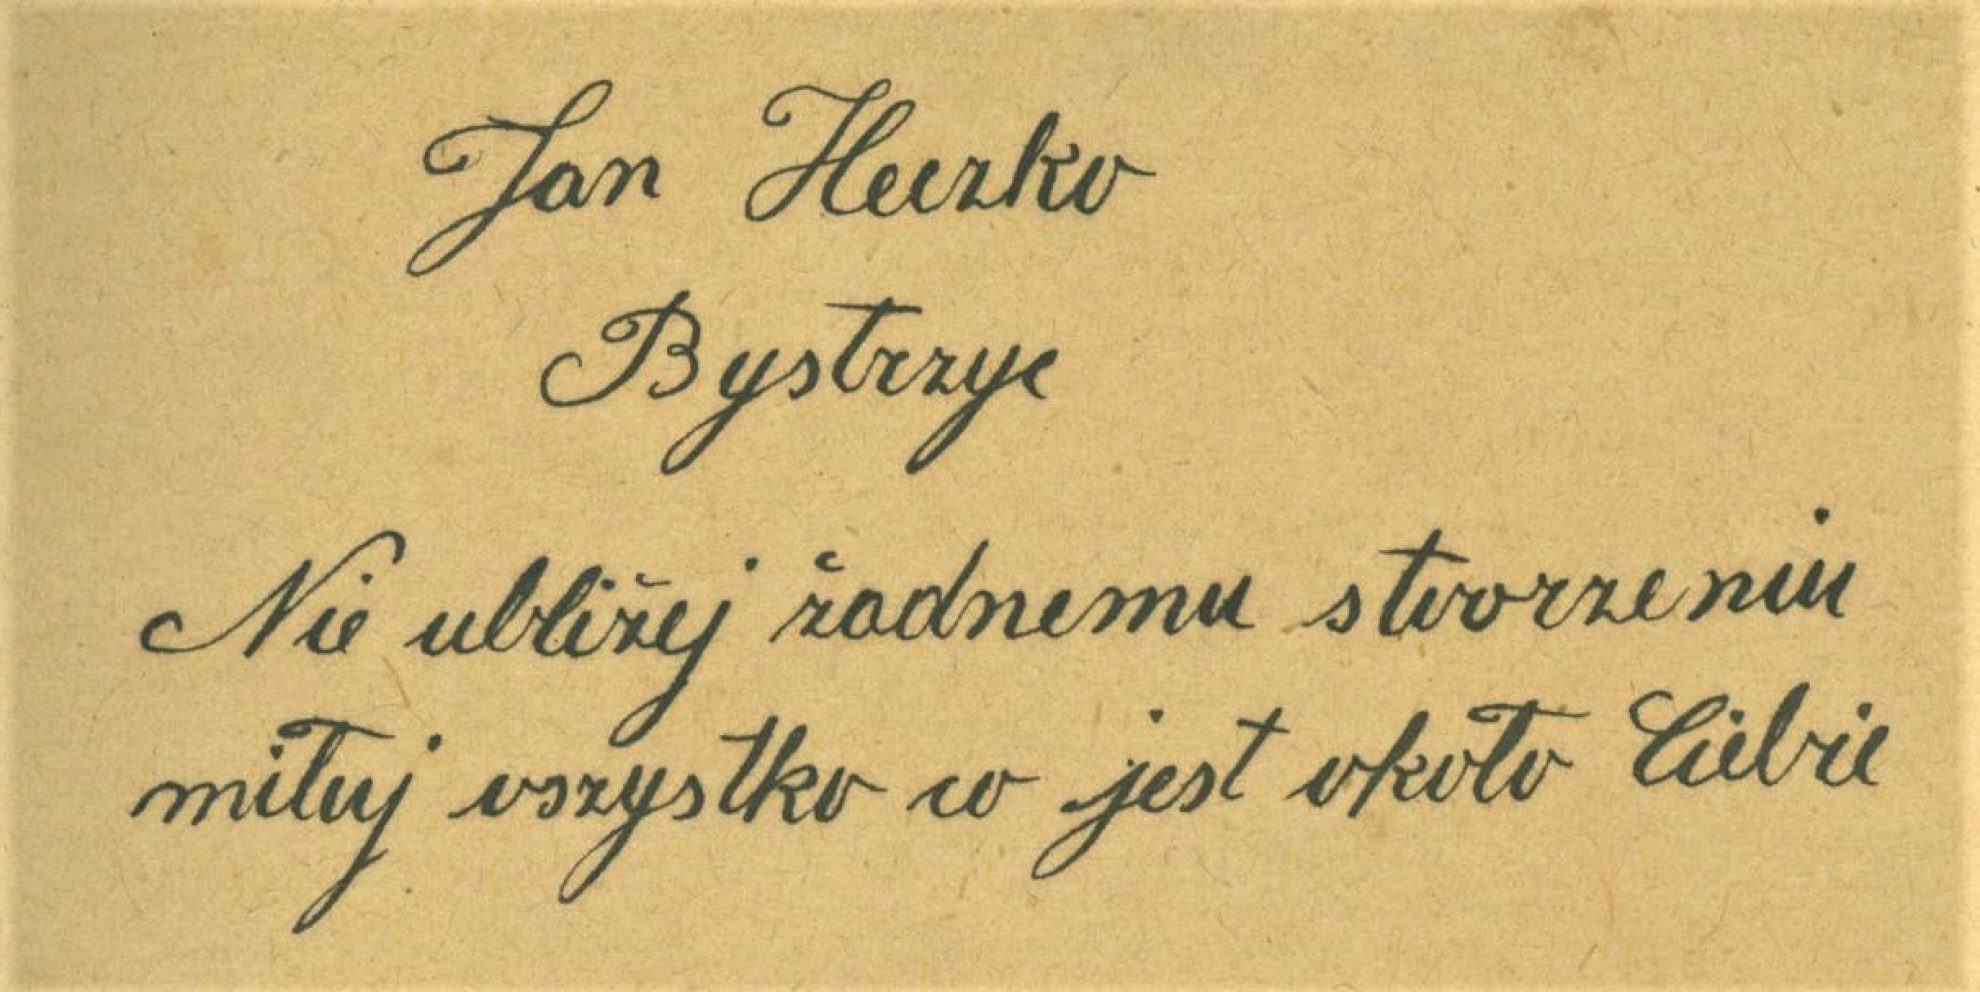 Jan Heczko
Bystrzyc
Nie ubliżej żadnemu stworzeniu
miłuj wszystko co jest około Ciebie